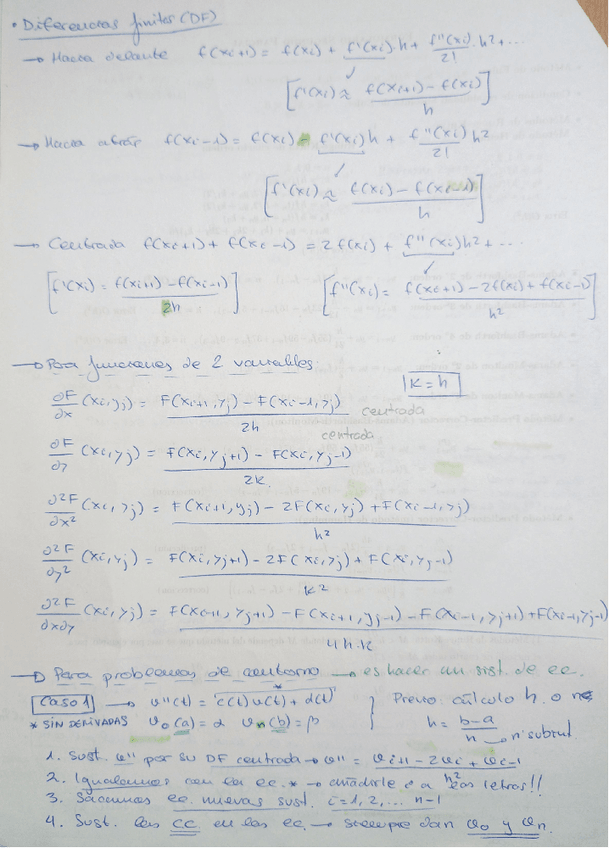 • Diferencias finitas (DF)
→ Hacia delante f(xi+1) = f(xi) + f'(xi)·h + f''(xi)/2! · h² + ...
[f'(xi) ≈ f(xi+1) - f(xi) / h]
→ Hacia atrás f(xi-1) = f(xi) - f'(xi)h + f''(xi)/2! h²
[f'(xi) ≈ f(xi) - f(xi-1) / h]
→ Centrada f(xi+1) + f(xi-1) = 2f(xi) + f''(xi)h² + ...
[f'(xi) = f(xi+1) - f(xi-1) / 2h] [f''(xi) = f(xi+1) - 2f(xi) + f(xi-1) / h²]
→ Para funciones de 2 variables:
K = h
∂F/∂x (xi, yj) = F(xi+1, yj) - F(xi-1, yj) / 2h centrada
centrada
∂F/∂y (xi, yj) = F(xi, yj+1) - F(xi, yj-1) / 2K
∂²F/∂x² (xi, yj) = F(xi+1, yj) - 2F(xi, yj) + F(xi-1, yj) / h²
∂²F/∂y² (xi, yj) = F(xi, yj+1) - 2F(xi, yj) + F(xi, yj-1) / K²
∂²F/∂x∂y (xi, yj) = F(xi+1, yj+1) - F(xi+1, yj-1) - F(xi-1, yj+1) + F(xi-1, yj-1) / 4h·k
→ Para problemas de contorno → es hacer un sist. de ec.
Caso 1 → v''(t) = c(t)v(t) + d(t) * Previo cálculo h o n
* SIN DERIVADAS v0(a) = α vn(b) = β h = b-a / n → nº subint.
1. Sust. v'' por su DF centrada → v'' = vi+1 - 2vi + vi-1 / h²
2. Igualamos con la ec. * → añadirle i a las letras!!
3. Sacamos ec. nuevas sust. i = 1, 2, ... n-1
4. Sust. las CC en las ec. → siempre dan v0 y vn.